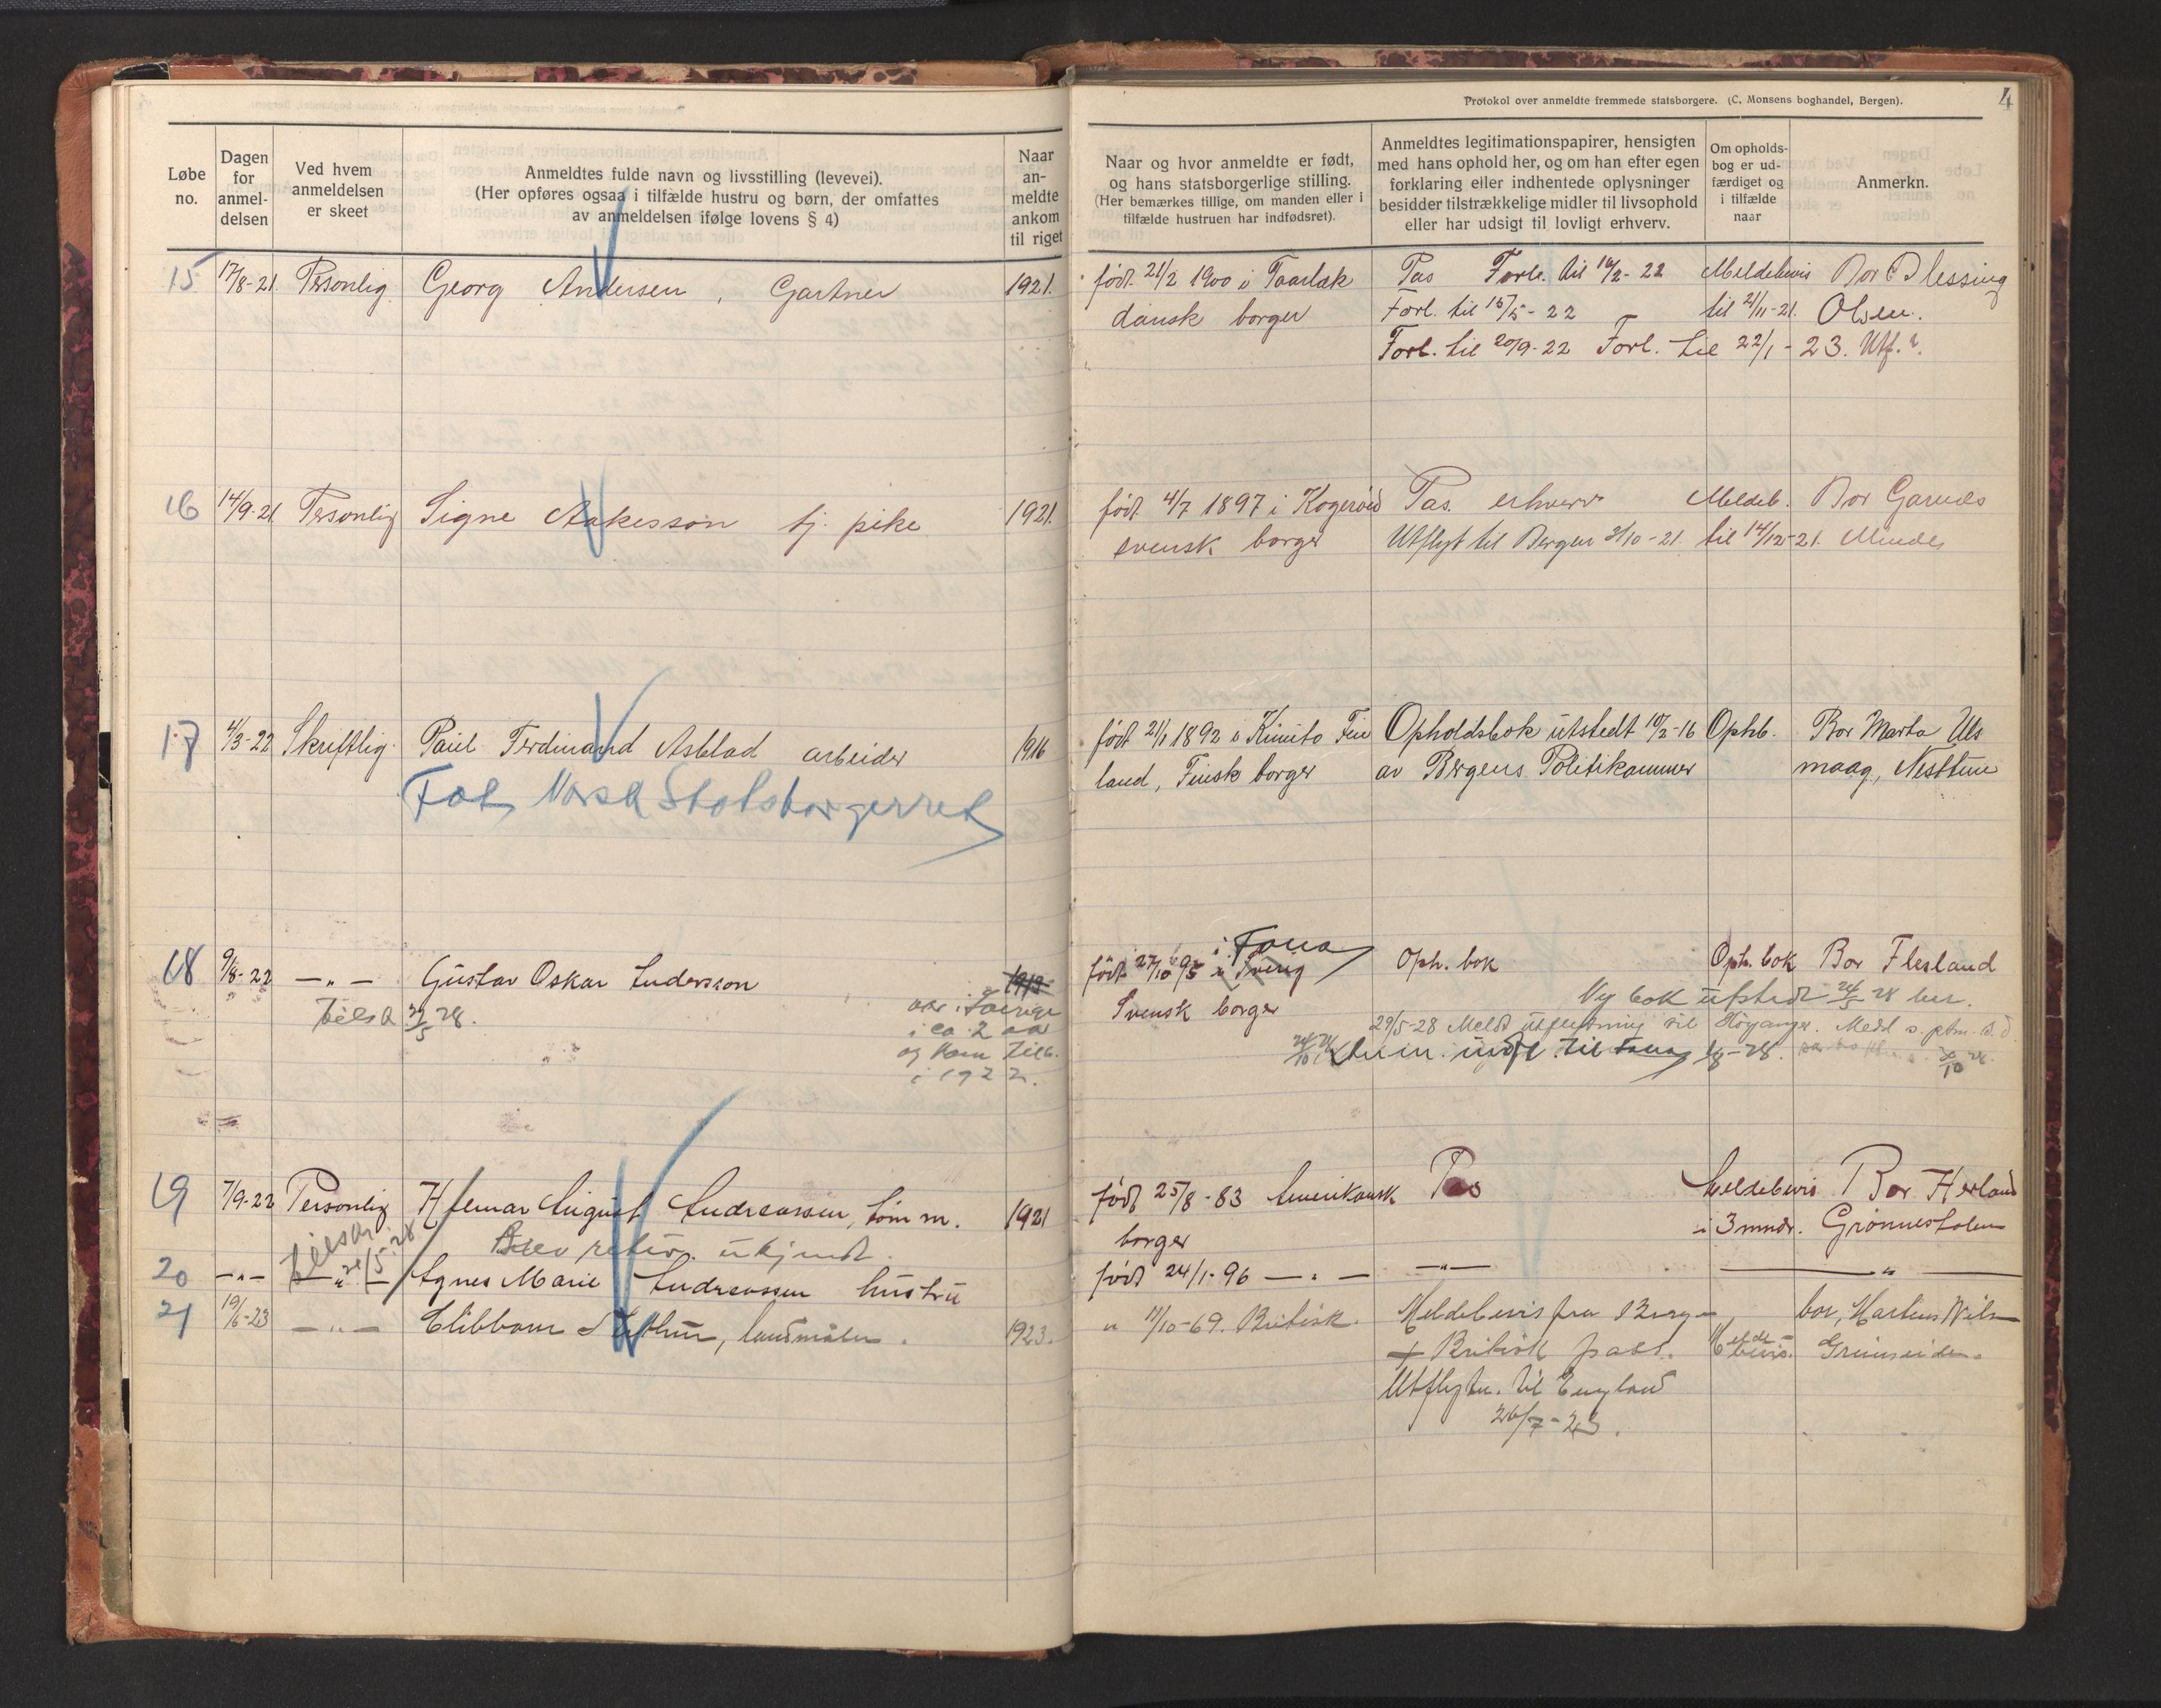 Protokol over anmeldte fremmede statsborgere. (C. Monsens boghandel, Bergen).
4
Løbe no.
Dagen for anmel-delsen
Ved hvem anmeldelsen er skeet
Anmeldtes fulde navn og livsstilling (levevei).
(Her opføres ogsaa i tilfælde hustru og børn, der omfattes
av anmeldelsen ifølge lovens § 4)
Naar an-meldte ankom til riget
Naar og hvor anmeldte er født,
og hans statsborgerlige stilling.
(Her bemærkes tillige, om manden eller i
tilfælde hustruen har indfødsret).
Anmeldtes legitimationspapirer, hensigten
med hans ophold her, og om han efter egen
forklaring eller indhentede oplysninger
besidder tilstrækkelige midler til livsophold
eller har udsigt til lovligt erhverv.
Om opholds-
bog er ud-
færdiget og
i tilfælde
naar
Anmerkn.
15 17/8-21 Personlig Georg Andersen, Gartner 1921. født 21/2 1900 i Taarbæk Pas Forl. til 16/2-22 Meldebevis Bor Blessing
dansk borger Forl. til 15/5-22 til 21/11-21. Olsen.
Forl. til 20/9-22 Forl. til 22/1-23. Utf.
16 14/9-21 Personlig Signe Aakesson tj. pike 1921. født 4/7 1897 i Kogerød Pas. erhverv Meldeb. Bor Garnæs
svensk borger Utflyt til Bergen 3/10-21. til 14/12-21. Minde
17 4/3-22 Skriftlig. Paul Ferdinand Asblad arbeider 1916 født 21/1 1892 i Kimito Fin Opholdsbok utstedt 10/2-16 Ophb. Bor Marta Uls
land, Finsk borger av Bergens Politikammer maag, Nesttun
Fåt Norsk Statsborgerret
18 9/8-22 -"- Gustav Oskar Andersson 1913 født 27/10 95 i Sverig i Fana Oph. bok Oph. bok Bor Flesland
Svensk borger
Tilsa 22/5 28.
var i Sverige
i ca. 2 aar
og kom tilb.
i 1922.
Ny bok utstedt 24/5 28 her.
29/5-28 Meldt utflytning til Höyanger. Medd s.
innfl. til Fana 1/8-28.
19 7/9-22 Personlig Hjemar August Andreassen, tömm. 1921 født 25/8-83 Amerikansk Pas Meldebevis Bor Herland
borger i 3 mndr. Grönnestolen
Tilsa 21/5.28
Brev retur. ukjendt.
20 -"- -"- Agnes Marie Andreassen hustru født 24/1-96 -"- -"- -"-
21 19/6-23 -"- Clibborn Arthur, landmåler. 1923. " 11/10-69. Britisk. Meldebevis fra Bergen bor, Martius
+ Britisk pass. Melde-bevis. Grimseiden.
Utflytn. til England
26/7-23.